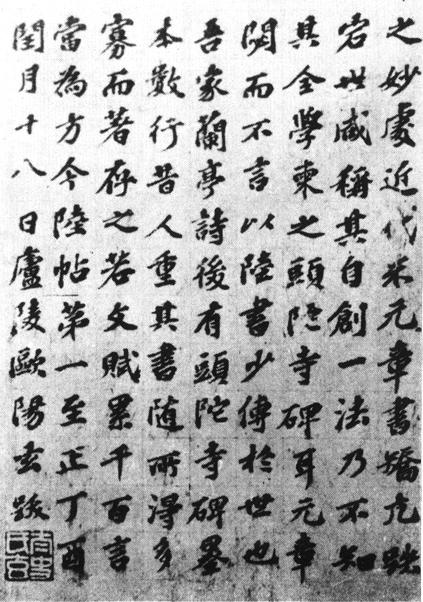 之妙處近代米元章書矯亢跌
宕世咸稱其自創一法乃不知
其全學柬之頭陀寺碑耳元章
閟而不言以陸書少傳於世也
吾家蘭亭詩後有頭陀寺碑墨
本數行昔人重其書随所得多
寡而著存之若文賦累千百言
當為方今陸帖第一至正丁酉
閏月十八日廬陵歐陽玄跋